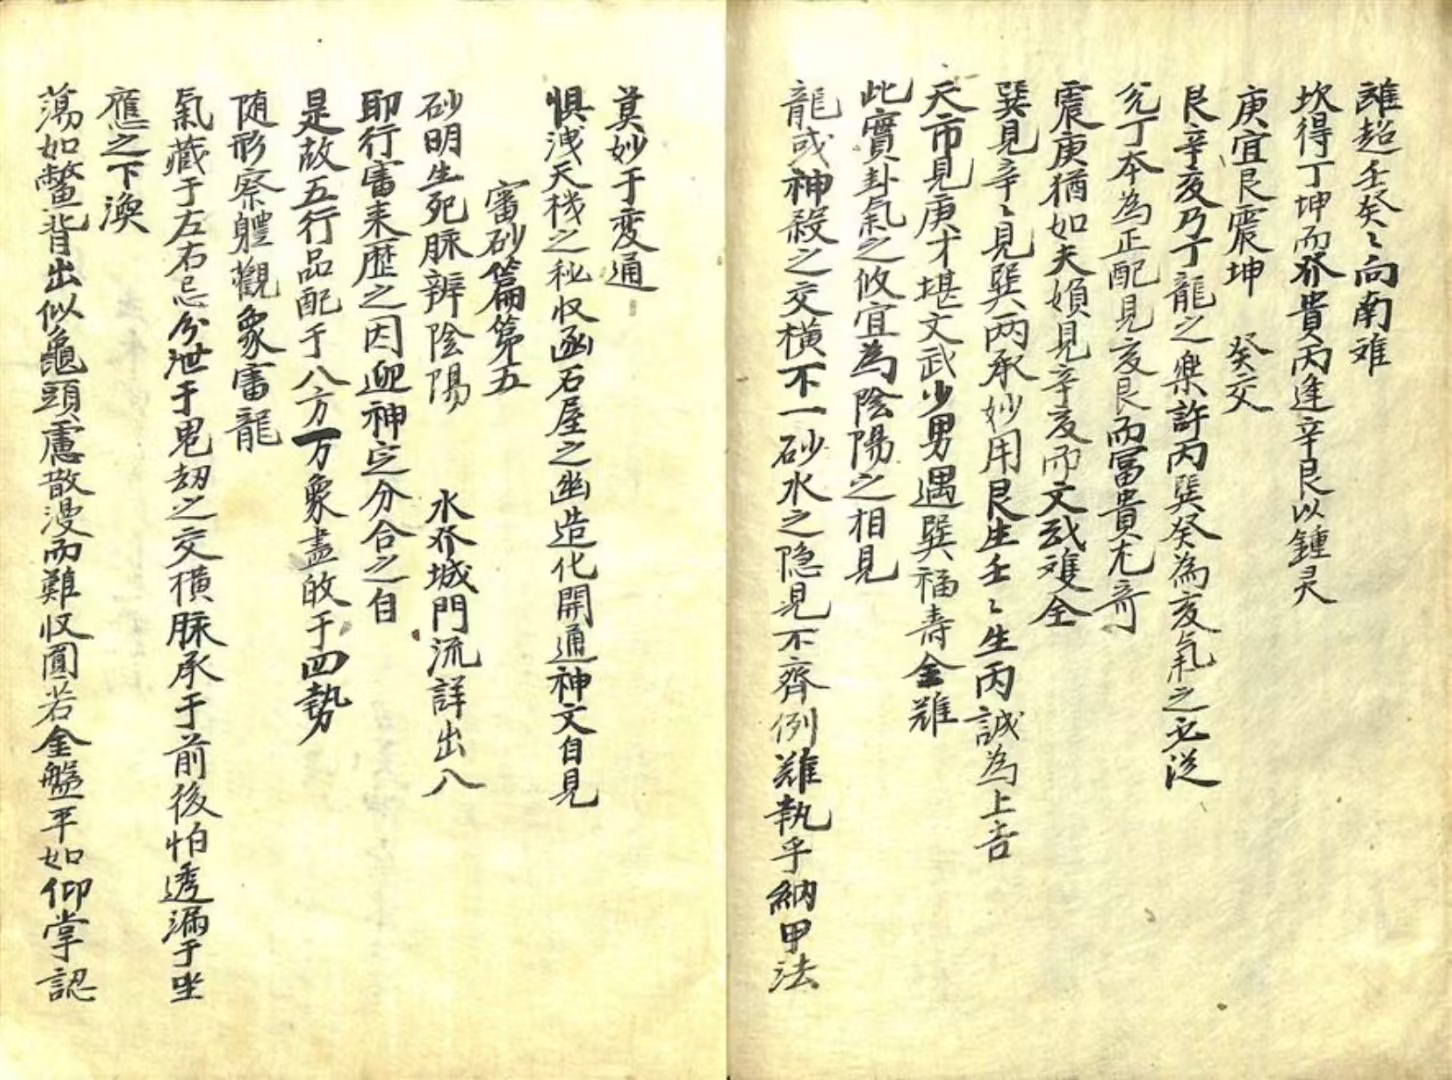 離超壬癸〻向南难
坎得丁坤而發貴丙逢辛艮以鍾灵
庚宜艮震坤　癸交
艮辛亥乃丁龍之樂許丙巽癸為亥氣之
兑丁本為正配見亥艮而冨貴尤竒
震庚猶如夫㛰見辛亥而文武雙全
巽見辛〻見巽两承妙用艮生壬〻生丙誠為上吉
天市見庚才堪文武少男遇巽福壽金難
此實卦氣之攸宜為陰陽之相見
龍或神殺之交横不一砂水之隐見不齊例難執乎納甲法
莫妙于变通
惧洩天機之秘収函石屋之幽造化開通神文自見
審砂篇第五
砂明生死脉辨陰陽　水發城門流詳出八
即行審来歴之因迎神定分合之自
是故五行品配于八方万象盡政于四勢
随形察軆觀象審龍
氣藏于左右忌分泄于鬼劫之交横脉承于前後怕透漏于坐
應之下渙
蕩如鱉背出似龜頭慮散漫而難収圓若金盤平如仰掌認